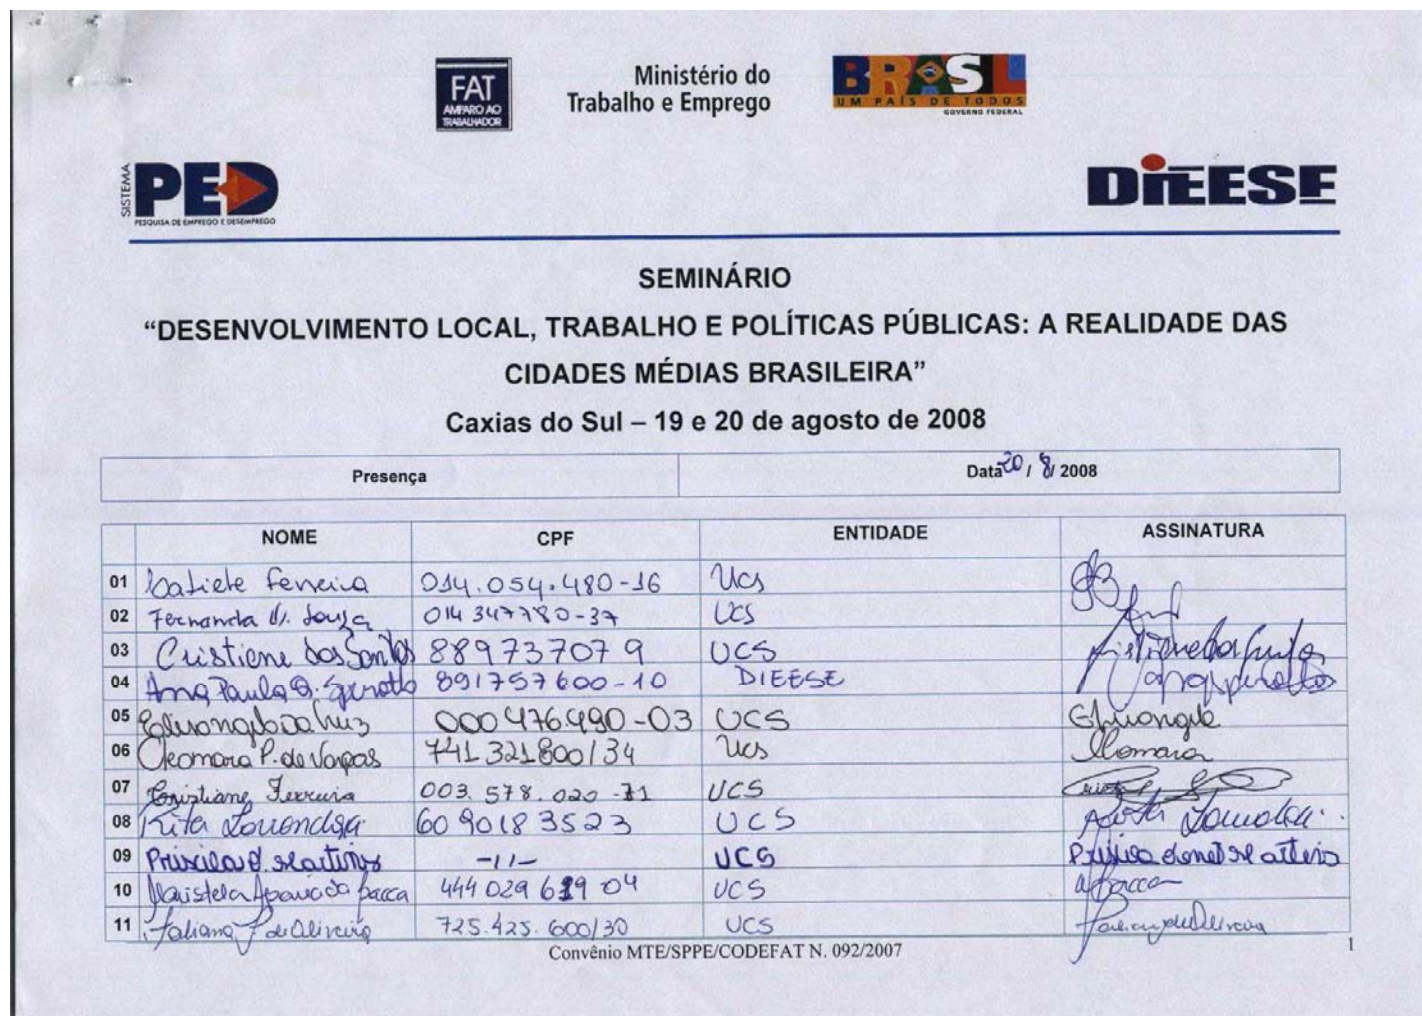 FAT
AMPARO AO
TRABALHADOR
Ministério do
Trabalho e Emprego
BRASIL
UM PAÍS DE TODOS
GOVERNO FEDERAL
SISTEMA
PED
PESQUISA DE EMPREGO E DESEMPREGO
DIEESE
SEMINÁRIO
“DESENVOLVIMENTO LOCAL, TRABALHO E POLÍTICAS PÚBLICAS: A REALIDADE DAS
CIDADES MÉDIAS BRASILEIRA”
Caxias do Sul – 19 e 20 de agosto de 2008
Presença Data 20 / 8 / 2008
NOME CPF ENTIDADE ASSINATURA
01 Ferreira 014.054.480-16 Ucs
02 Fernanda Souza 014347780-37 UCS
03 Cristiene dos Santos 889737079 UCS
04 Ana Paula 891757600-10 DIEESE
05 000476490-03 UCS
06 Cleomara P. de Vargas 741321800/34 Ucs
07 Cristiane Ferreira 003.578.020-71 UCS
08 Rita 6090183523 UCS
09 Priscila Martins -11- UCS
10 Maristela Aparecida 444029619 04 UCS
11 de Oliveira 725.425.600/30 UCS
Convênio MTE/SPPE/CODEFAT N. 092/2007 1